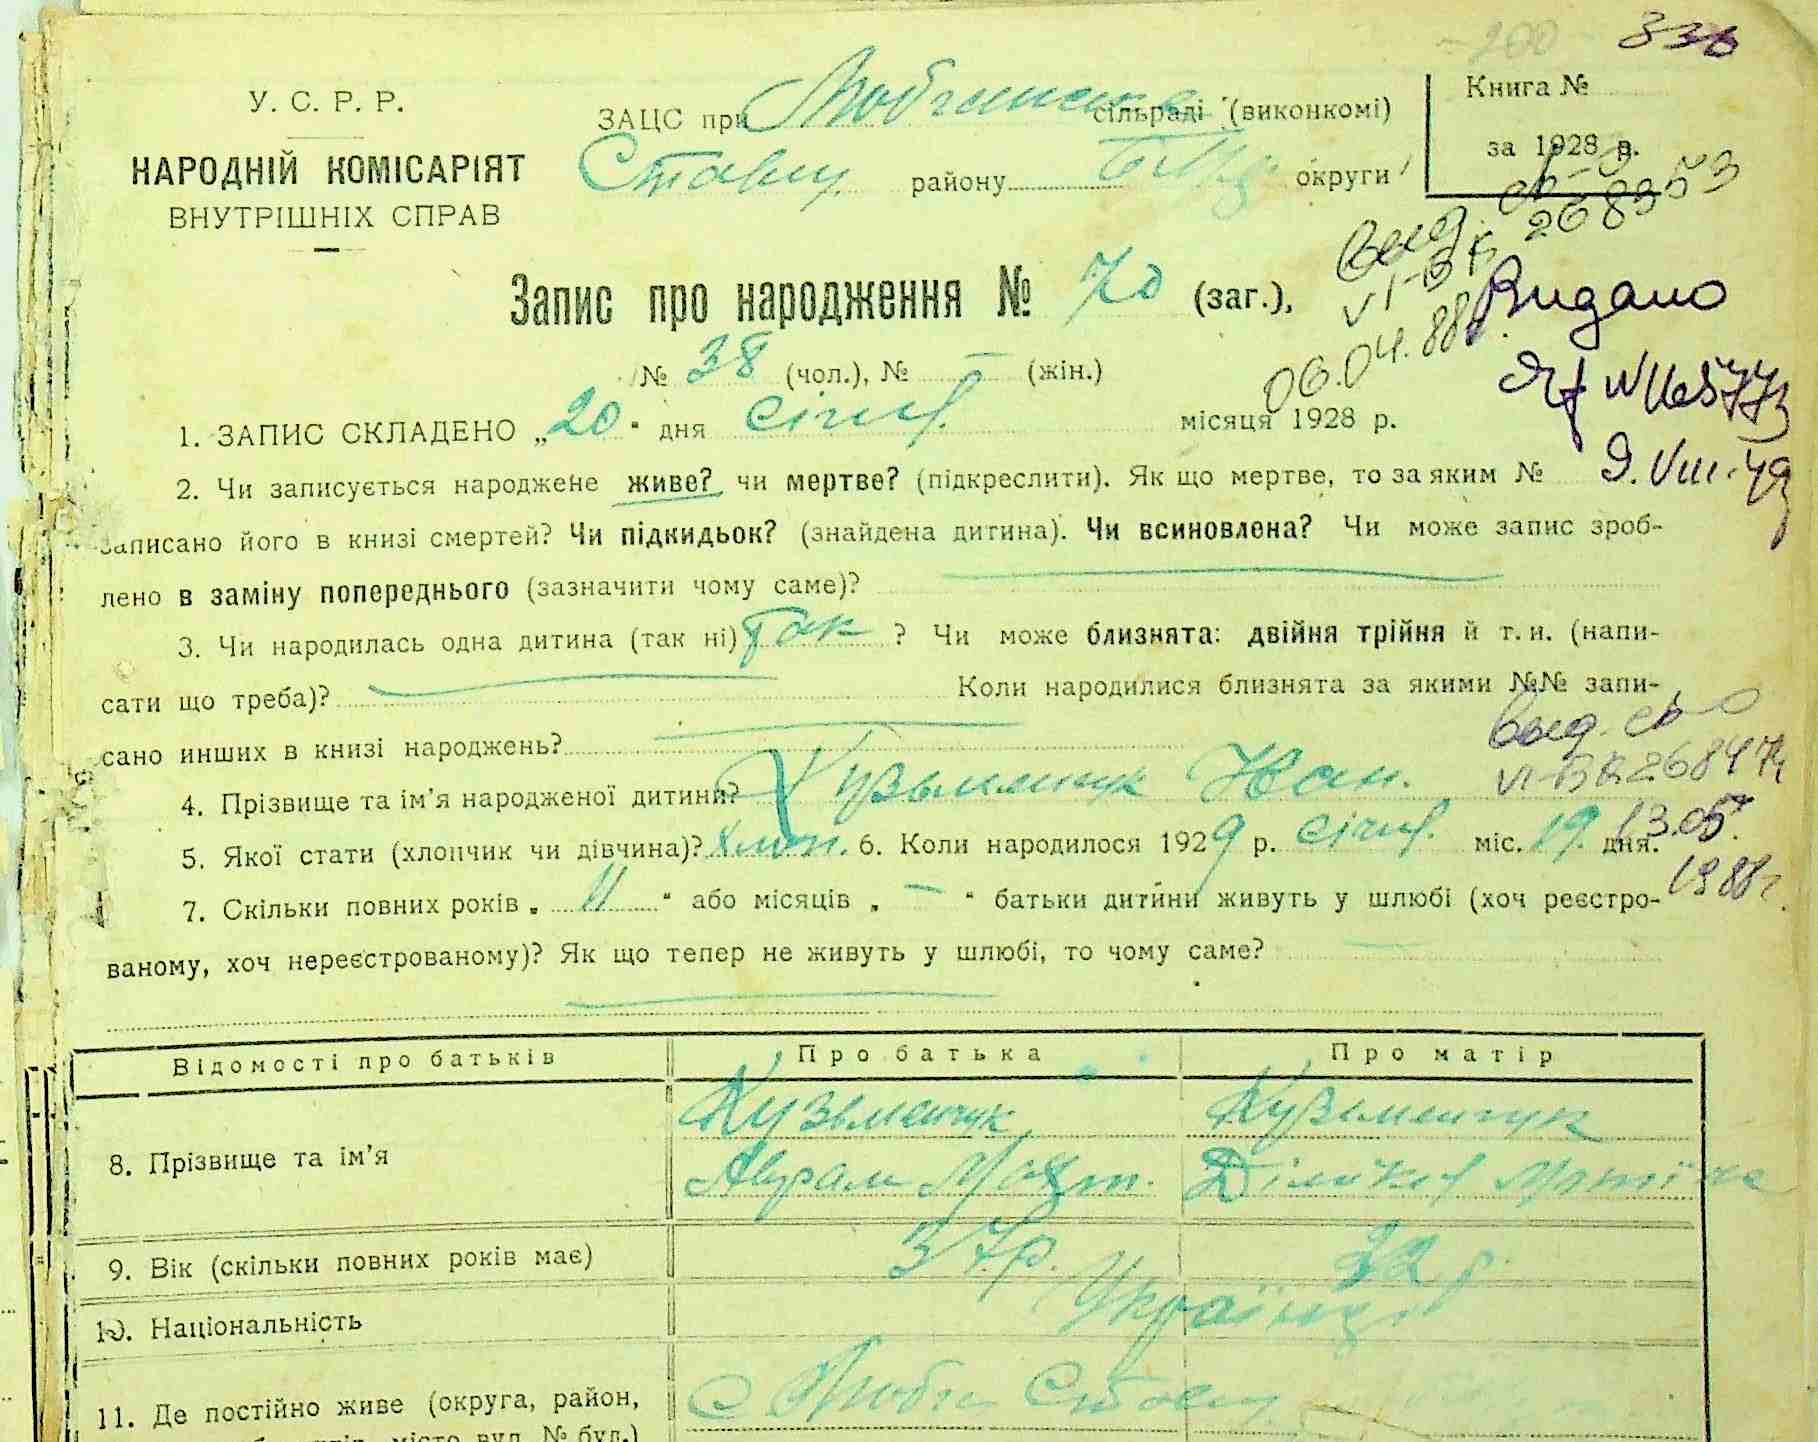 336
200
У. С. Р. Р.
ЗАЦС при сільраді (виконкомі)
Книга №
НАРОДНІЙ КОМІСАРІЯТ
Ставищ. району округи
за 1928 р.
ВНУТРІШНІХ СПРАВ
Запис про народження № 70 (заг.),
выд. св-о
VI-БК 268353
06.04.88г.
Видано
№ 38 (чол.), № — (жін.)
9.VIII-49
1. ЗАПИС СКЛАДЕНО „20" дня січня місяця 1928 р.
2. Чи записується народжене живе? чи мертве? (підкреслити). Як що мертве, то за яким №
записано його в книзі смертей? Чи підкидьок? (знайдена дитина). Чи всиновлена? Чи може запис зроб-
лено в заміну попереднього (зазначити чому саме)?
3. Чи народилась одна дитина (так ні) так ? Чи може близнята: двійня трійня й т. и. (напи-
сати що треба)? Коли народилися близнята за якими №№ запи-
сано инших в книзі народжень?
выд. св-о
VI-БК 268474
13.05.
1988г.
4. Прізвище та ім'я народженої дитини? Кузьменчук Іван.
5. Якої стати (хлопчик чи дівчина)? хлоп. 6. Коли народилося 1929 р. січня міс. 19. дня.
7. Скільки повних років „ 11 " або місяців „ — " батьки дитини живуть у шлюбі (хоч реєстро-
ваному, хоч нереєстрованому)? Як що тепер не живуть у шлюбі, то чому саме?
Відомості про батьків Про батька Про матір
8. Прізвище та ім'я Кузьменчук Кузьменчук
Аврам
9. Вік (скільки повних років має) 37р. 32 р.
10. Національність Українці
11. Де постійно живе (округа, район, с
місто вул. № буд.)